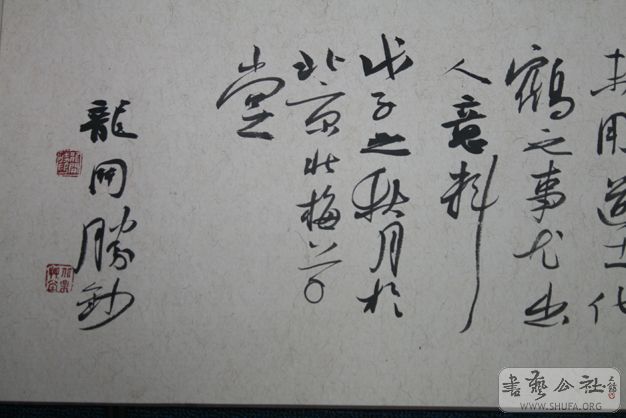 末用道士化
鶴之事尤出
人意料
戊子之秋月於
北京梅草
堂
龍開勝鈔
書藝公社
WWW.SHUFA.ORG